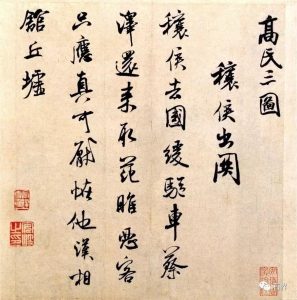 高氏三圖
穰侯出關
穰侯去國緩驅車蔡
澤還来取范雎惡客
只應真可厭恠他漢相
舘丘墟